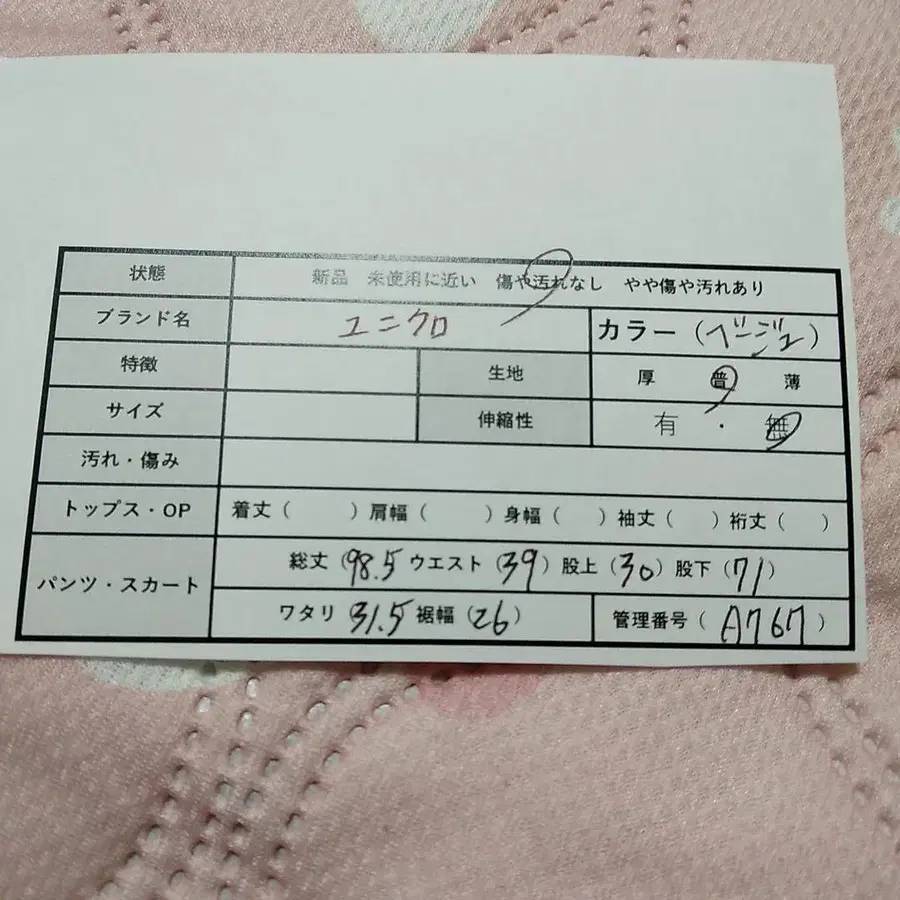 状態 新品 未使用に近い 傷や汚れなし やや傷や汚れあり
ブランド名 ユニクロ カラー（ベージュ）
特徴 生地 厚 普 薄
サイズ 伸縮性 有 ・ 無
汚れ・傷み
トップス・OP 着丈（ ）肩幅（ ）身幅（ ）袖丈（ ）裄丈（ ）
パンツ・スカート 総丈（98.5 ウエスト（39）股上（30）股下（71）
ワタリ（31.5 裾幅（26） 管理番号（A767）